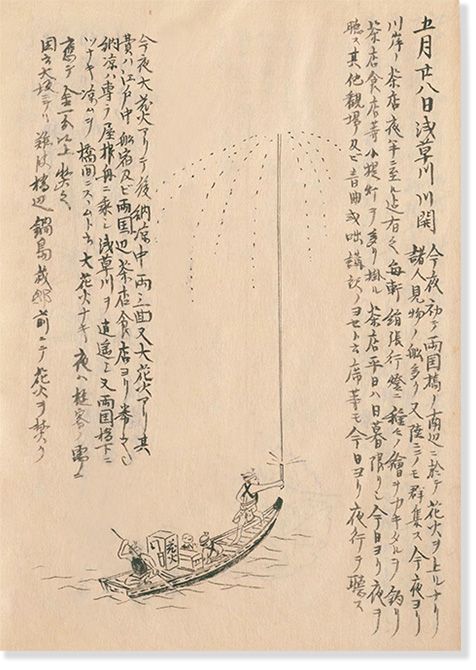 五月廿八日浅草川川開
今夜初テ両国橋ノ南辺ニ於テ花火ヲ上ルナリ
諸人見物ノ船多ク又陸ニモ群集ス今夜ヨリ
川岸ノ茶店夜半ニ至ル迄有之毎軒絹張行燈ニ種々ノ繪ヲカキタルヲ釣リ
茶店食店等小提灯ヲ多ク掛ル茶店平日ハ日暮限リ今日ヨリ夜ヲ
聴ス其他観場及ビ音曲或咄講談ノヨセト云席等モ今日ヨリ夜行ヲ聴ス
今夜大花火アリテ後納凉中両三回又大花火アリ其
費ハ江戸中船宿及ビ両国辺茶店食店ヨリ募之
納凉ハ専ラ屋根舟ニ乗シ浅草川ヲ逍遥シ又両国橋下ニ
ツナキ凉ムヲ橋間ニスヽムト云大花火ナキ夜ハ遊客ノ需ニ
應テ金一分以上焚之
因云大坂ニテハ難波橋辺鍋島蔵邸前ニテ花火ヲ焚ク
花火